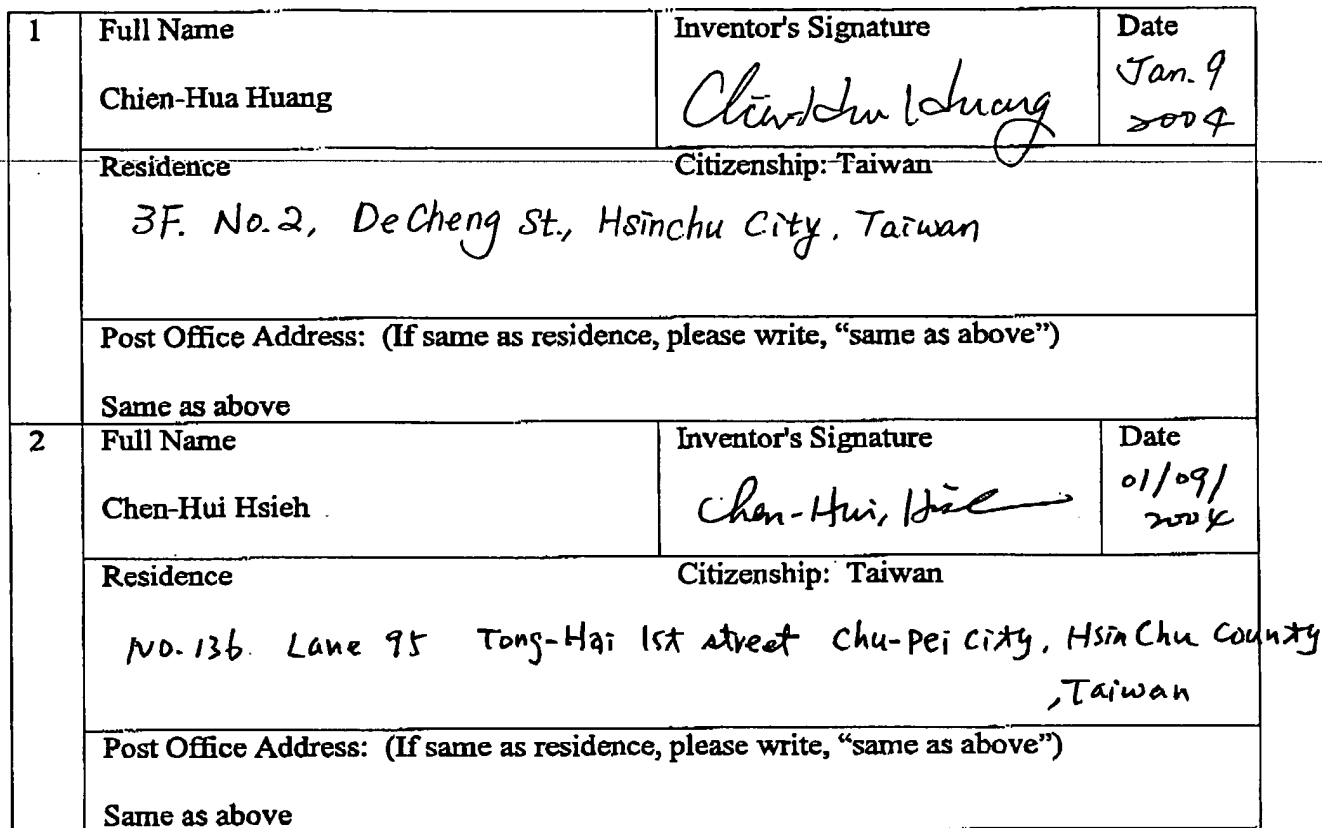 1 Full Name Inventor's Signature Date
Chien-Hua Huang Chien-Hua Huang Jan. 9
2004
Residence Citizenship: Taiwan
3F. No.2, De Cheng St., Hsinchu City, Taiwan
Post Office Address: (If same as residence, please write, “same as above”)
Same as above
2 Full Name Inventor's Signature Date
Chen-Hui Hsieh Chen-Hui, Hsieh 01/09/
2004
Residence Citizenship: Taiwan
No. 136. Lane 95 Tong-Hai 1st street Chu-Pei City, HsinChu County
,Taiwan
Post Office Address: (If same as residence, please write, “same as above”)
Same as above